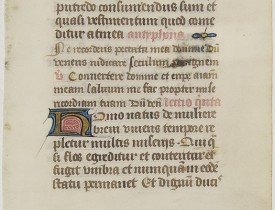 putredo consumendus sum et
quasi vestimentum quod come
ditur a tinea antyphona
Ne recorderis peccata mea domine Dum
veneris iudicare seculum per ignem
V Convertere domine et eripe aiam
meam salvum me fac propter mise
ricordiam tuam Dum ven lectio quinta
Homo natus de muliere
brevi vivens tempore re
pletur multis miseriis Qui
si flos egreditur et conteritur et
fugit velut umbra et nunquam in eodem
statu permanet Et dignum duci